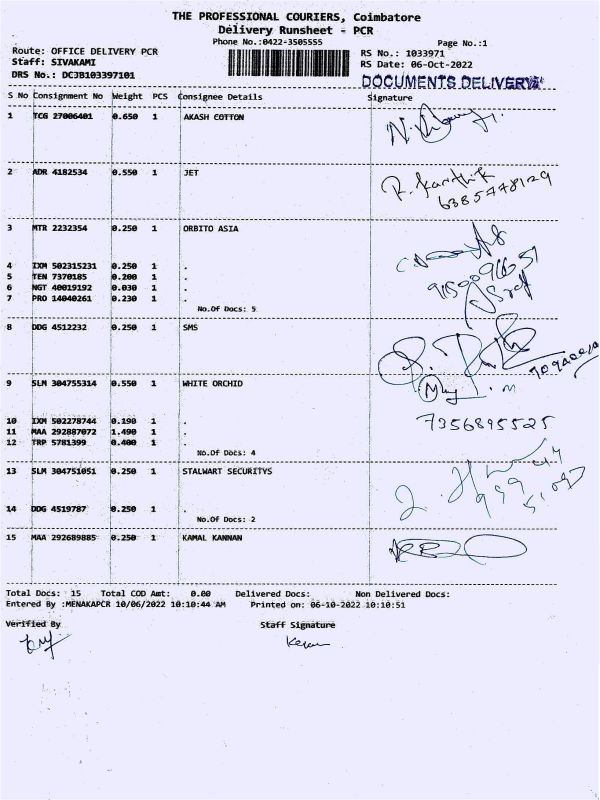 THE PROFESSIONAL COURIERS, Coimbatore
Delivery Runsheet - PCR
Phone No.:0422-3505555
Page No.:1
Route: OFFICE DELIVERY PCR
RS No.: 1033971
Staff: SIVAKAMI
RS Date: 06-Oct-2022
DRS No.: DC3B103397101
DOCUMENTS DELIVERY
S No Consignment No Weight PCS Consignee Details Signature
1 TCG 27006401 0.650 1 AKASH COTTON
2 ADR 4182534 0.550 1 JET
R. Karthik
6385778129
3 MTR 2232354 0.250 1 ORBITO ASIA
4 IXM 502315231 0.250 1 .
5 TEN 7370185 0.200 1 .
6 NGT 40019192 0.030 1 .
7 PRO 14040261 0.230 1 .
No.Of Docs: 5
8 DDG 4512232 0.250 1 SMS
9 SLM 304755314 0.550 1 WHITE ORCHID
10 IXM 502278744 0.190 1 .
7356895525
11 MAA 292887072 1.490 1 .
12 TRP 5781399 0.400 1 .
No.Of Docs: 4
13 SLM 304751051 0.250 1 STALWART SECURITYS
14 DDG 4519787 0.250 1 .
No.Of Docs: 2
15 MAA 292689885 0.250 1 KAMAL KANNAN
Total Docs: 15 Total COD Amt: 0.00 Delivered Docs: Non Delivered Docs:
Entered By :MENAKAPCR 10/06/2022 10:10:44 AM Printed on: 06-10-2022 10:10:51
Verified By Staff Signature